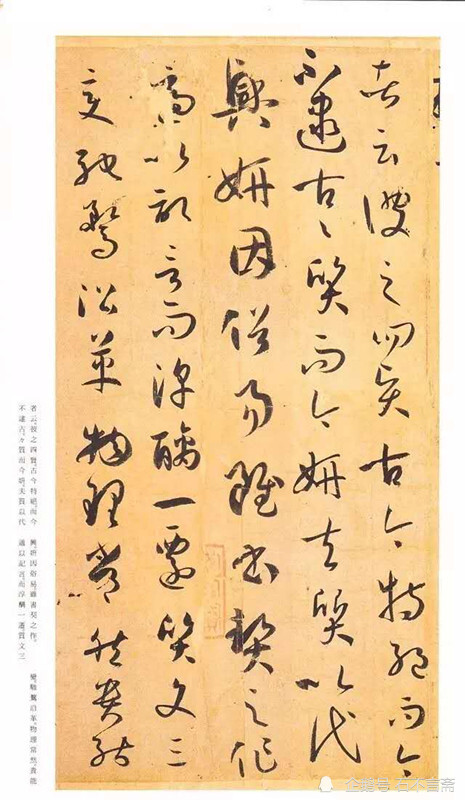 者云彼之四賢古今特絕而今
不逮古〻質而今妍夫質以代
興妍因俗易雖書契之作
適以記言而淳醨一遷質文三
變馳騖沿革物理常然貴能
者云。彼之四賢。古今特絕。而今
不逮古。々質而今妍。夫質以代
興。妍因俗易。雖書契之作。
適以記言。而淳醨一遷。質文三
變。馳騖沿革。物理常然。貴能
企鹅号